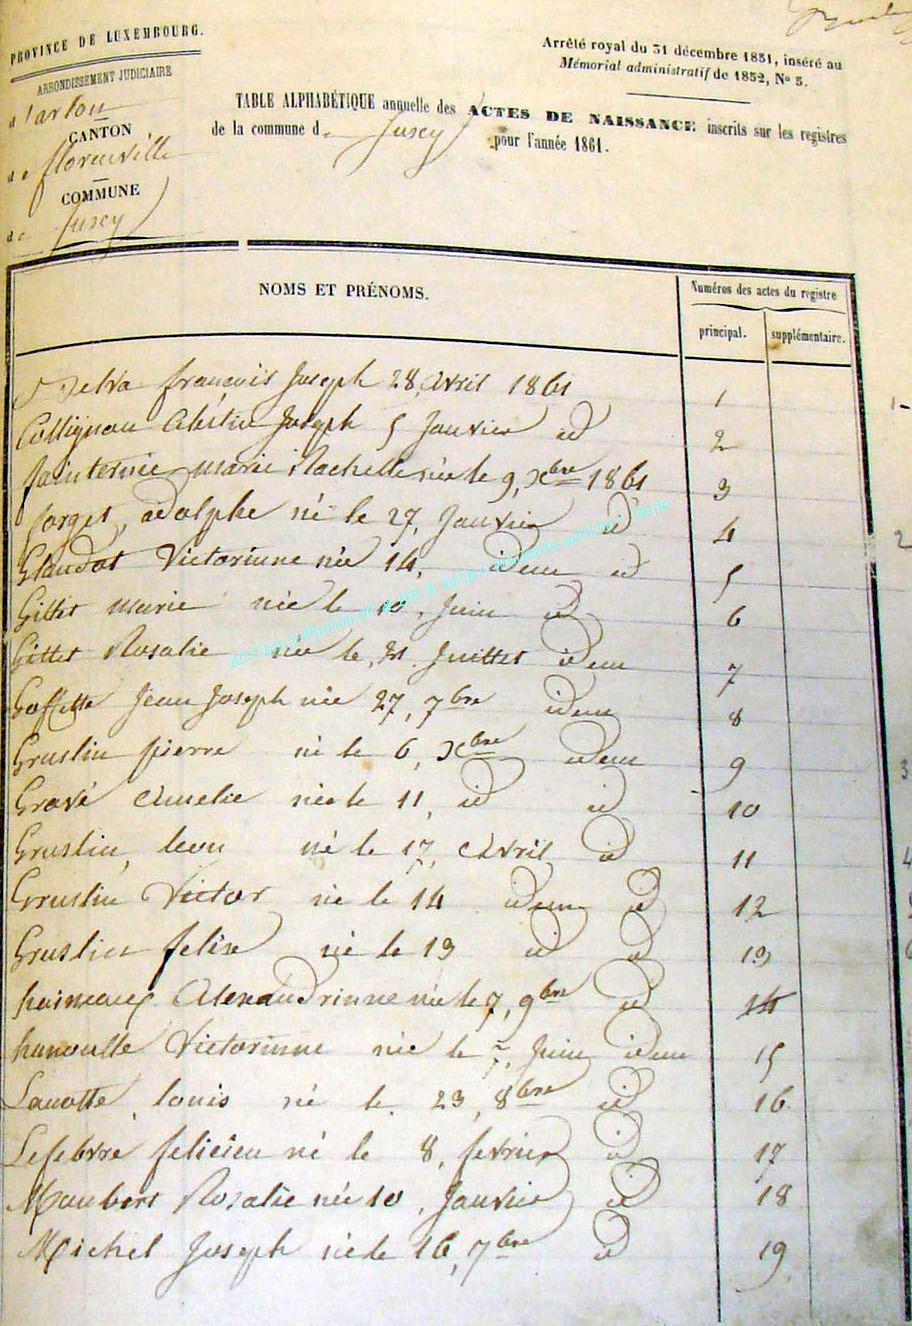 PROVINCE DE LUXEMBOURG.
ARRONDISSEMENT JUDICIAIRE
d'arlon
CANTON
de florenville
COMMUNE
de Jusey
Arrêté royal du 31 décembre 1851, inséré au
Mémorial administratif de 1852, No 3.
TABLE ALPHABÉTIQUE annuelle des ACTES DE NAISSANCE inscrits sur les registres
de la commune de Jusey pour l'année 1861.
NOMS ET PRÉNOMS.
Numéros des actes du registre
principal. supplémentaire.
françois Joseph 28, avril 1861 1
Collignon Joseph 5 Janvier id 2
marie Rachelle née le 9, Xbre 1861 3
forget, adolphe né le 27, Janvier id 4
Glaudot Victorinne née 14, idem id 5
Gillet marie née le 10, Juin id 6
Gillet Rosalie née le, 31, Juillet idem 7
Goffette Jean Joseph née 27, 7bre idem 8
Gruslin pierre né le 6, Xbre idem 9
Gravé Amelie née le 11, id id 10
Gruslin, leon né le 17, Avril id 11
Gruslin Victor né le 14 idem id 12
Gruslin felixe né le 19 id id 13
haineaux Alexandrinne née le 7, 9bre id 14
hanoulle Victorinne née le 7, Juin idem 15
Lanotte, louis né le 23, 8bre id 16
Lefebvre felicien né le 8, fevrier id 17
Maubert Rosalie née 10, Janvier id 18
Michel Joseph né le 16, 7bre id 19